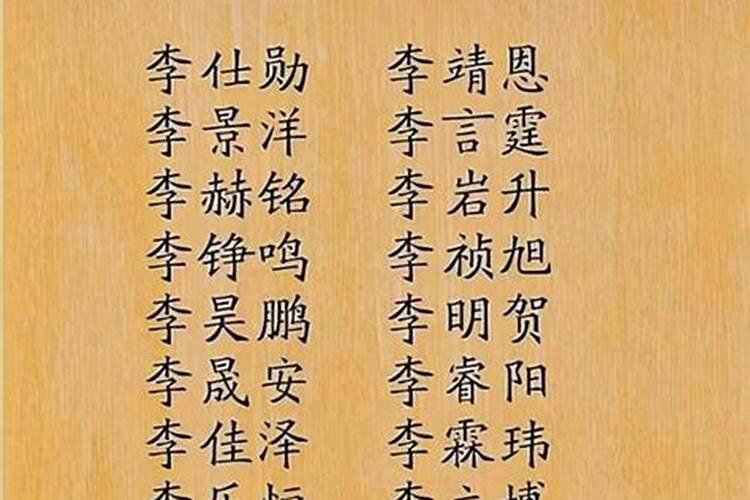 李仕勋 李靖恩
李景洋 李言霆
李赫铭 李岩升
李铮鸣 李祯旭
李昊鹏 李明贺
李晟安 李睿阳
李佳泽 李霖玮